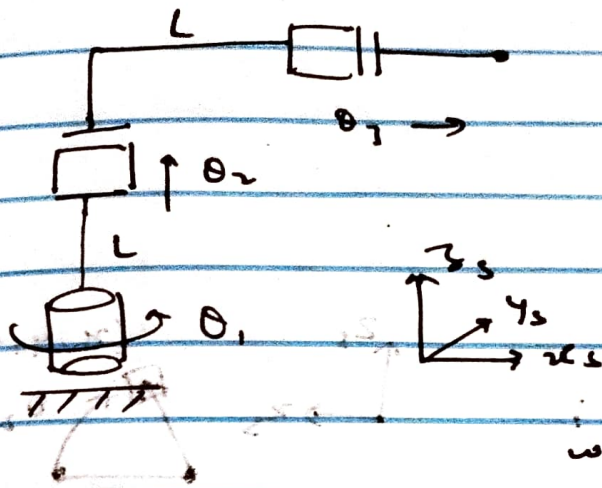 L
θ₃
θ₂
L
θ₁
zₛ
yₛ
xₛ
ω